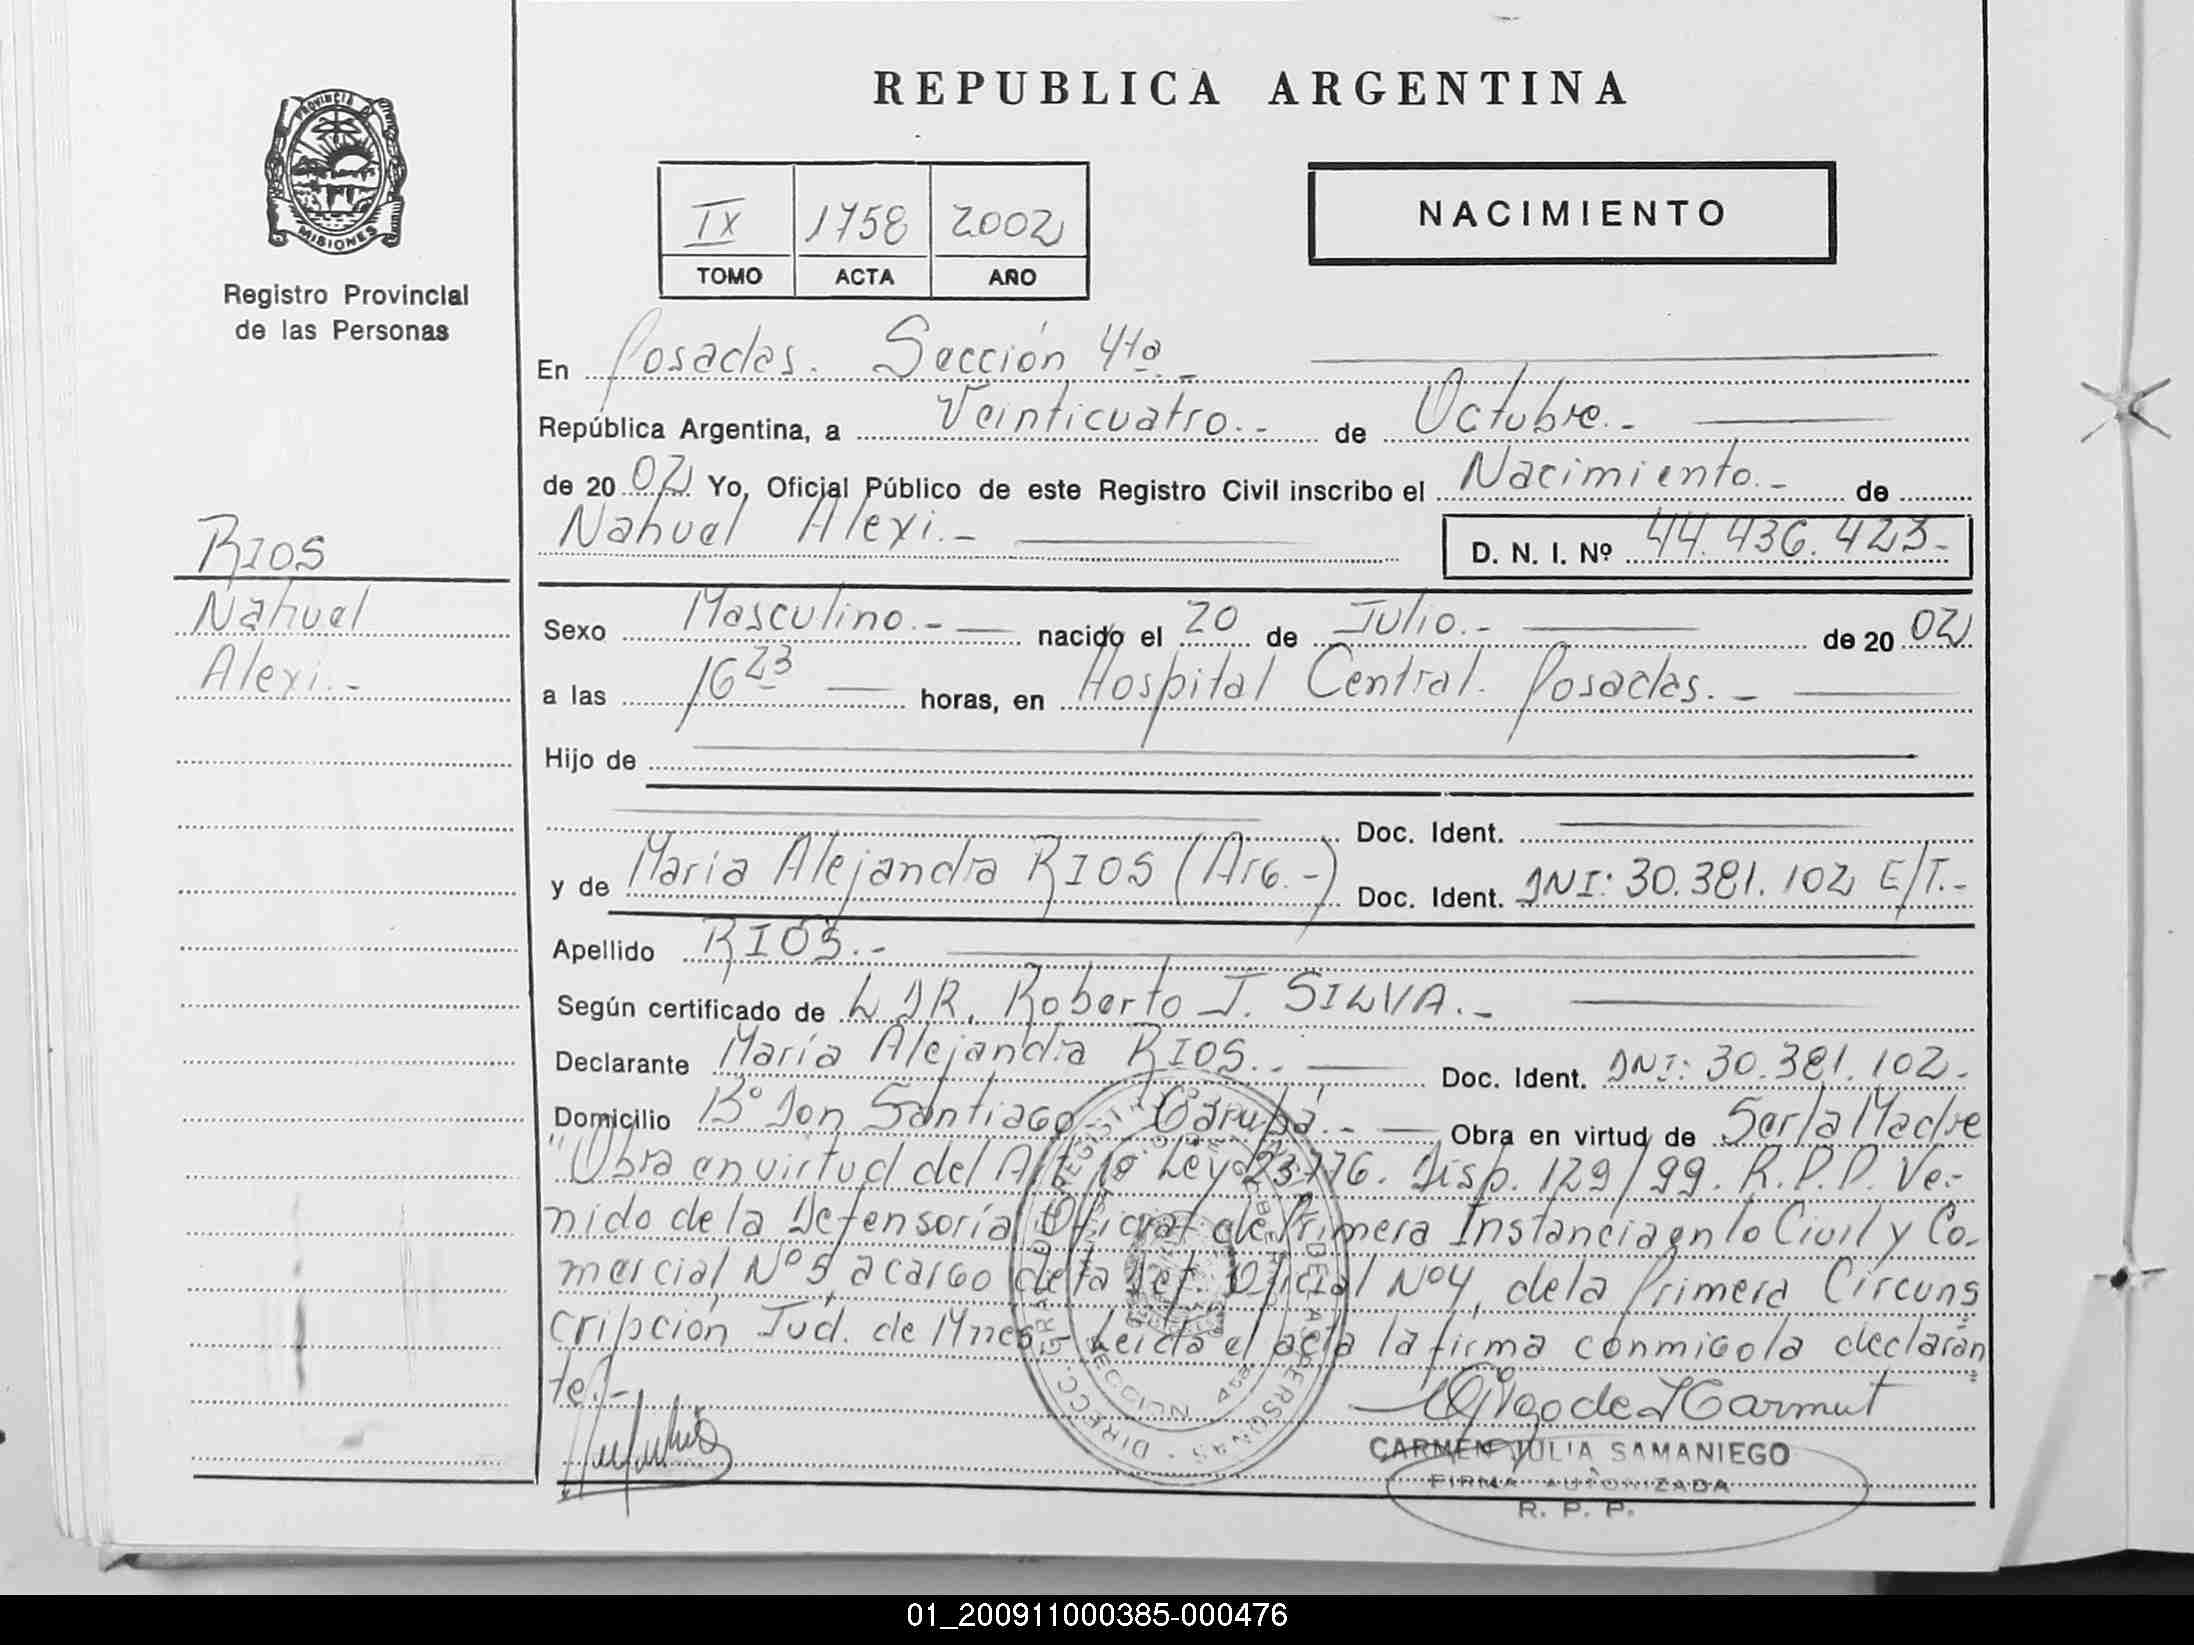 REPUBLICA ARGENTINA
PROVINCIA DE
MISIONES
Registro Provincial
de las Personas
IX 1758 2002
TOMO ACTA AÑO
NACIMIENTO
En Posadas. Sección 4ta.-
República Argentina, a Veinticuatro.- de Octubre.-
de 2002 Yo, Oficial Público de este Registro Civil inscribo el Nacimiento.- de
Nahuel Alexi.- D. N. I. Nº 44.436.423-
RIOS
Nahuel
Alexi.-
Sexo Masculino.- nacido el 20 de Julio.- de 2002
a las 16 23 horas, en Hospital Central. Posadas.-
Hijo de
Doc. Ident.
y de María Alejandra RIOS (Arg.-) Doc. Ident. DNI: 30.381.102 E/T.-
Apellido RIOS.-
Según certificado de DR. Roberto J. SILVA.-
Declarante María Alejandra RIOS.- Doc. Ident. DNI: 30.381.102.-
Domicilio Bº Don Santiago- Garupá.- Obra en virtud de Ser la Madre
"Obra en virtud del Art 1º Ley 23776. Disp. 129/99. R.P.P. Ve-
nido de la Defensoría Oficial de Primera Instancia en lo Civil y Co-
mercial Nº 5, a cargo de la Def. Oficial Nº 4, de la Primera Circuns
cripción Jud. de Mnes.- Leida el acta la firma conmigo la declaran
te.-
CARMEN JULIA SAMANIEGO
FIRMA AUTORIZADA
R. P. P.
01_200911000385-000476